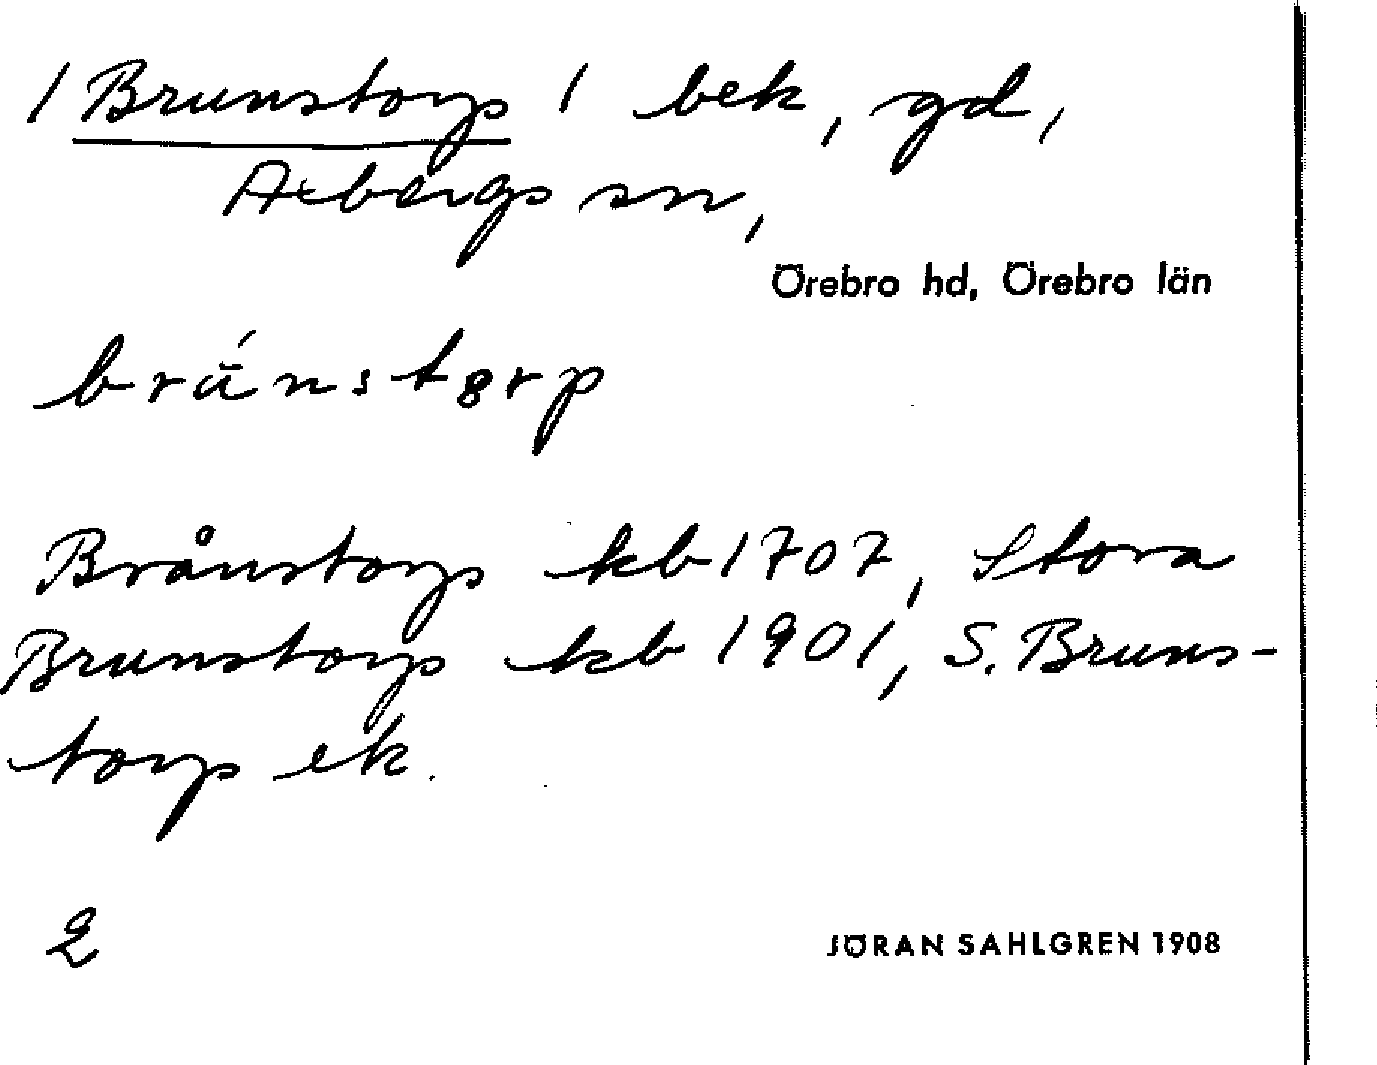 / Brunstorp / bek, gd,
Axbergs sn,
Örebro hd, Örebro län
Brånstorp kb 1707, Stora
Brunstorp kb 1901, S. Bruns-
torp ek.
2
JÖRAN SAHLGREN 1908